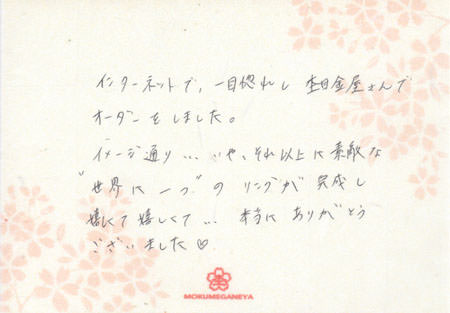 インターネットで、一目惚れし 杢目金屋さんで
オーダーをしました。
イメージ通り... いや、それ以上に素敵な
"世界に一つ"の リングが 完成し
嬉しくて嬉しくて... 本当に ありがとう
ございました♡
MOKUMEGANEYA